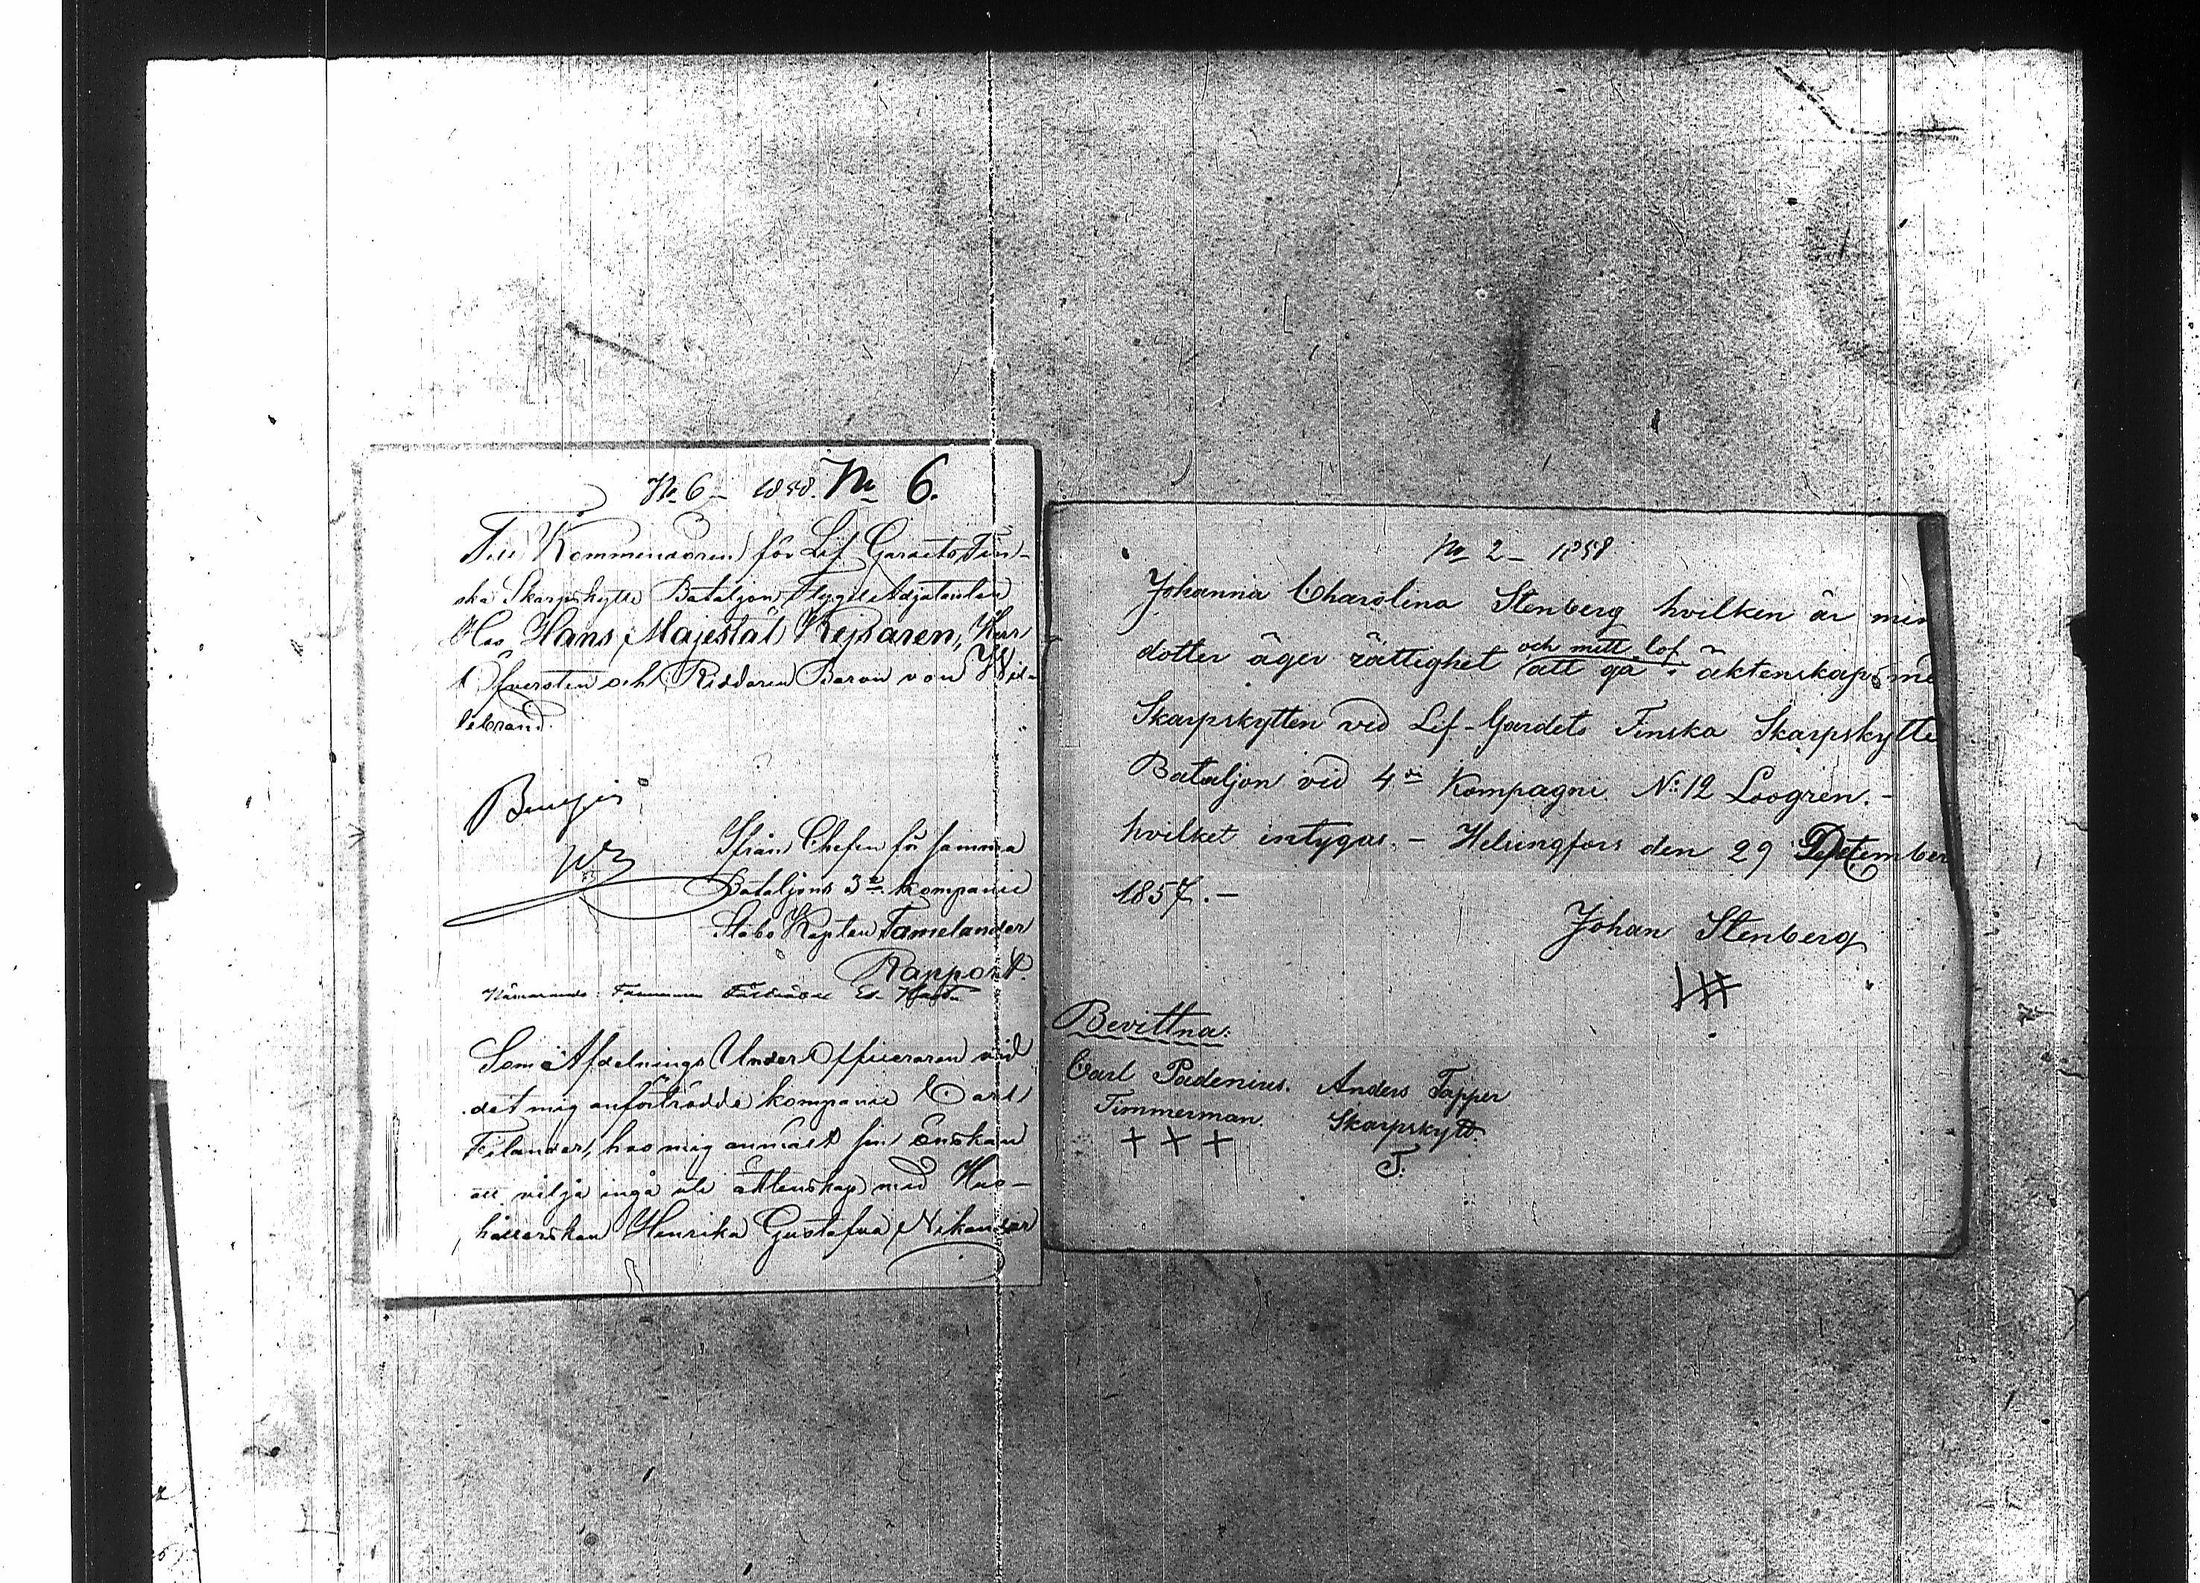 No 6 - 1858. No 6.
Till Kommendören för Lif Gardets Fin-
ska Skarpskytte Bataljon, Flygel Adjutanten
Hos Hans Majestät Kejsaren, Herr
Öfversten och Riddaren Baron von Wil-
lebrand.
Från Chefen för samma
Bataljons 3e kompanie
Stabs Kapten Tamelander
Rapport.
Närvarande:
Som Afdelnings Under Officeraren vid
det mig anförtrodde kompanie Carl
Filander, hos mig anmält sin önskan
att vilja ingå uti äktenskap med Hus-
hållerskan Henrika Gustafva Nikander
No 2 - 1858
Johanna Charolina Stenberg hvilken är min
dotter äger rättighet och mitt lof att gå i äktenskap me
Skarpskytten vid Lif-Gardets Finska Skarpskytte
Bataljon vid 4de Kompagni No 12 Loogren. -
hvilket intygas. - Helsingfors den 29
1857. -
Johan Stenberg
Bevittna:
Carl Padenius. Anders Tapper
Timmerman. Skarpskytt.
+ + + T.